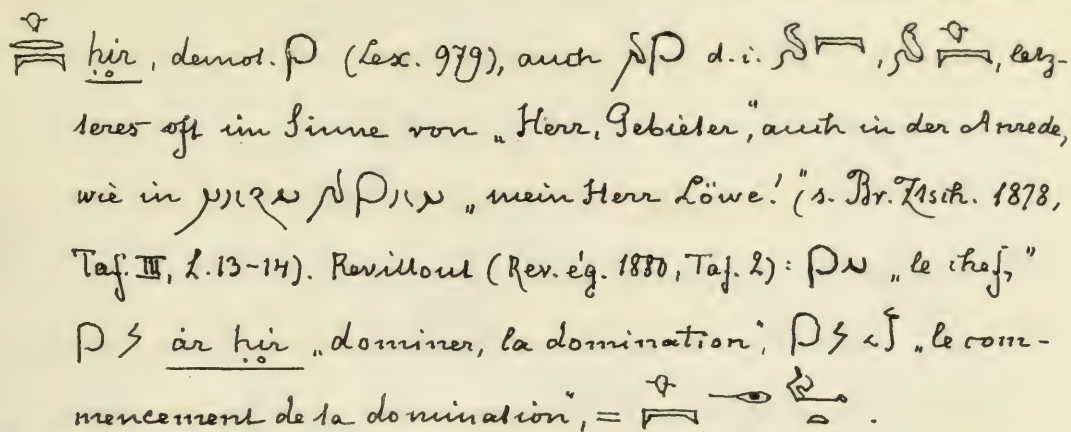 ḥir, demot. (Lex. 979), auch d.i. , , letz-
teres oft im Sinne von „Herr, Gebieter“, auch in der Anrede,
wie in „mein Herr Löwe!“ (s. Br. Ztsch. 1878,
Taf. III, L. 13-14). Revillout (Rev. ég. 1880, Taf. 2): „le chef,“
ȧr ḥir „dominer, la domination“, „le com-
mencement de la domination“, = .